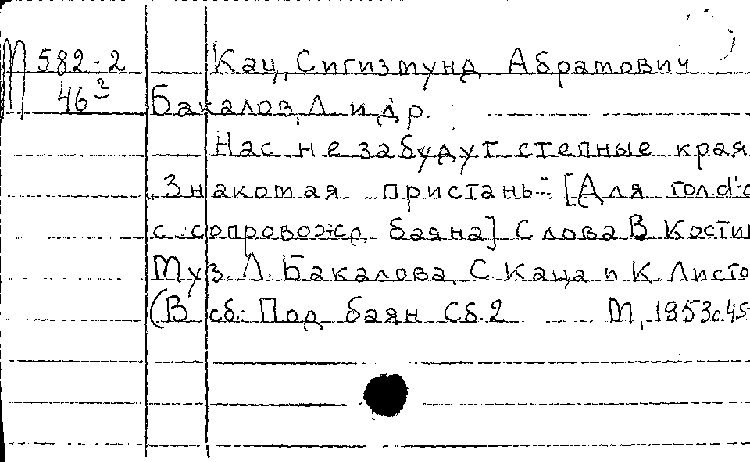 М 582-2 Кац, Сигизмунд Абрамович
46³ Бакалов, Л и др.
Нас не забудут степные края
Знакомая пристань- [Для гол
с сопровожд. баяна] Слова В Кости
Муз. Л. Бакалова, С Каца и К Листо
(В сб: Под баян Сб.2 М, 1953 с.45